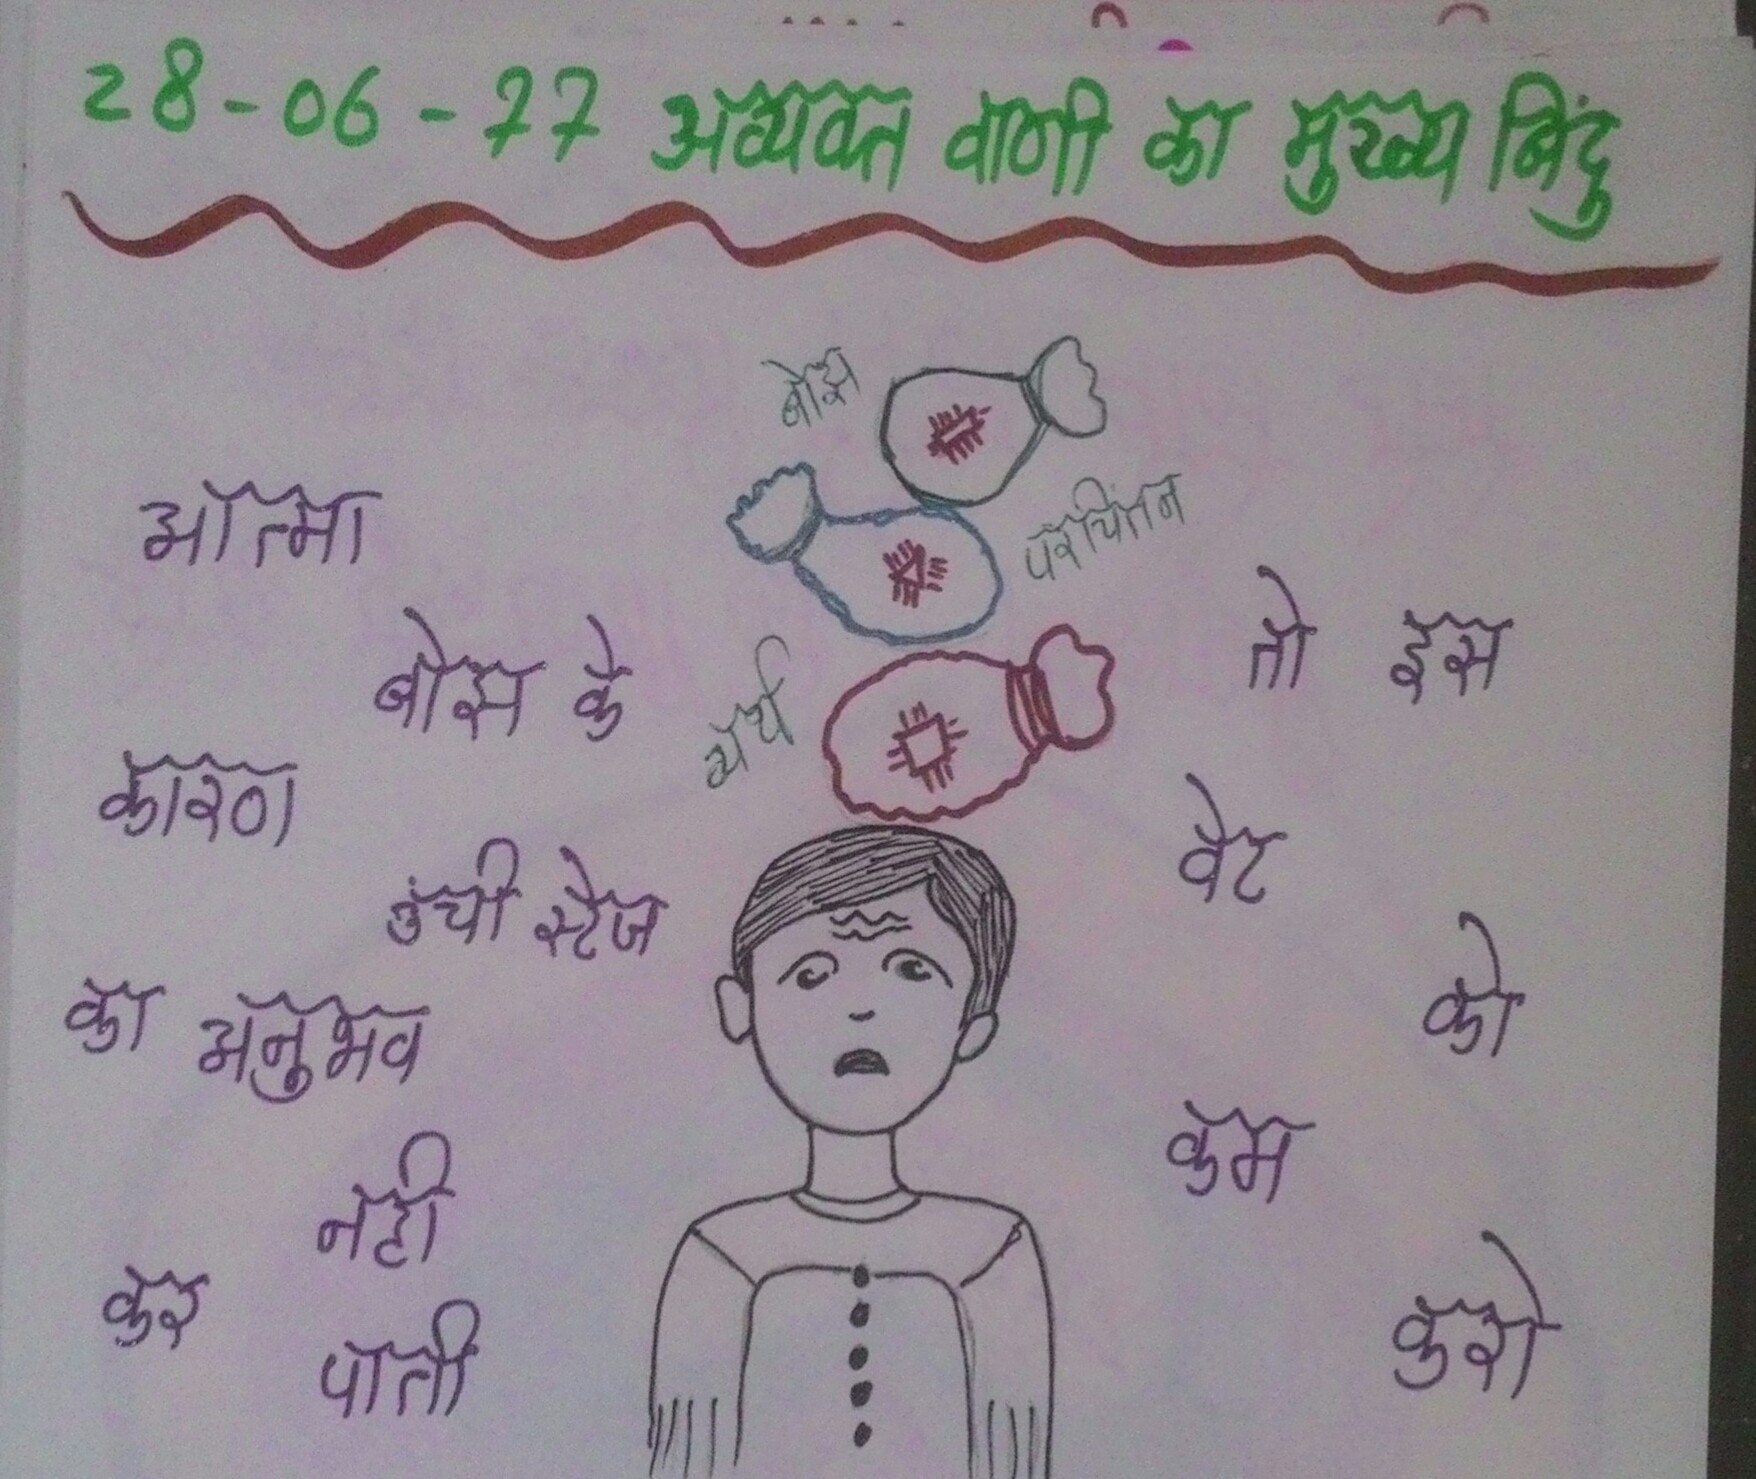 28-06-77 अव्यक्त वाणी का मुख्य बिंदु
बोझ
परचिंतन
व्यर्थ
आत्मा
बोझ के
कारण
उंची स्टेज
का अनुभव
नही
कर
पाती
तो इस
वेट
को
कम
करो